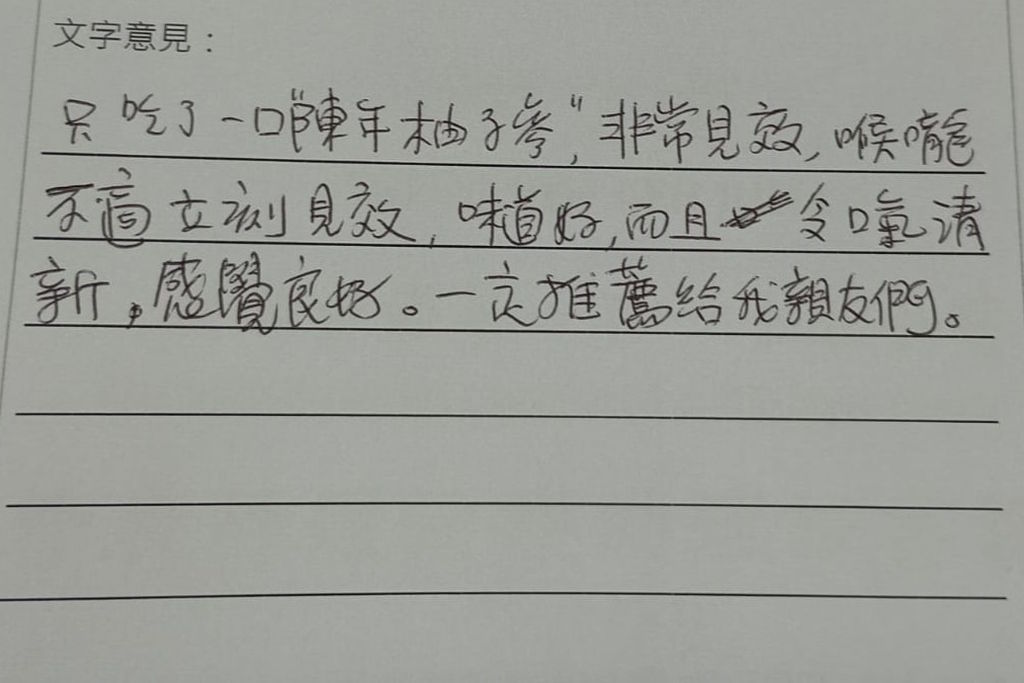 文字意見：
只吃了一口"陳年柚子參"，非常見效，喉嚨
不適立刻見效，味道好，而且令口氣清
新，感覺良好。一定推薦給我親友們。